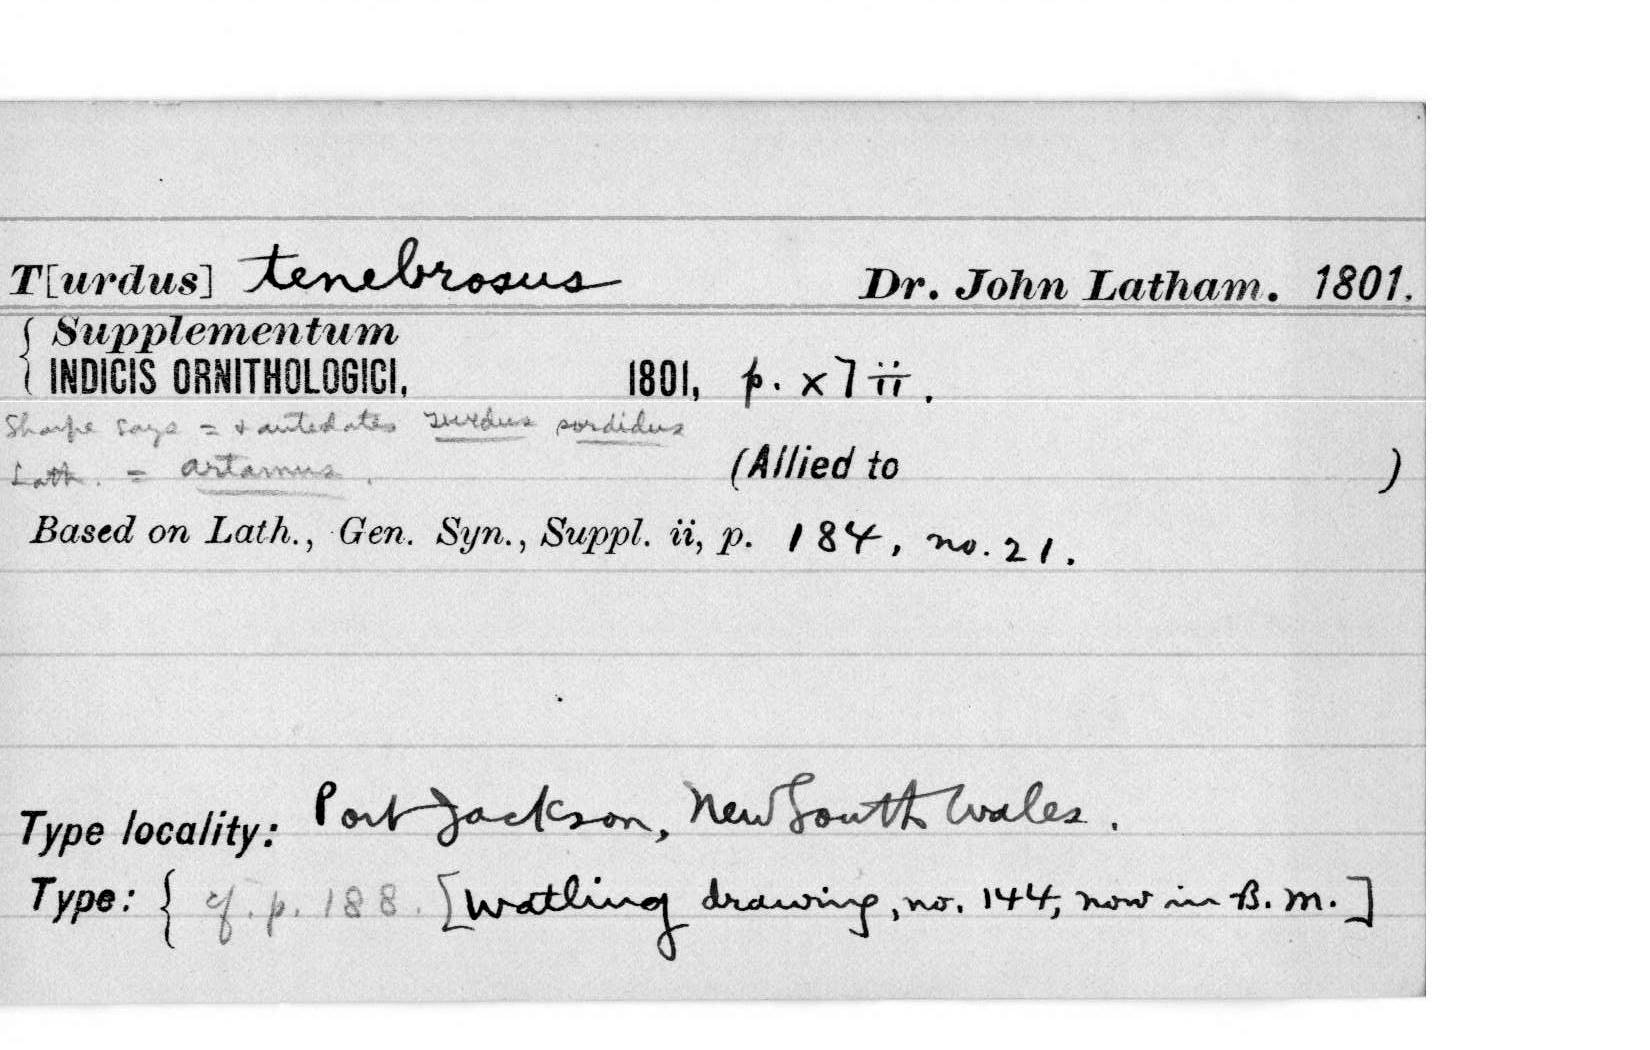 T[urdus] tenebrosus Dr. John Latham. 1801.
{ Supplementum
INDICIS ORNITHOLOGICI, 1801, p. xlii.
Sharpe says = & antedates Turdus sordidus
Lath. = artamus.
(Allied to )
Based on Lath., Gen. Syn., Suppl. ii, p. 184, no. 21.
Type locality: Port Jackson, New South Wales.
Type: { cf. p. 188. [Watling drawing, no. 144, now in B. M.]